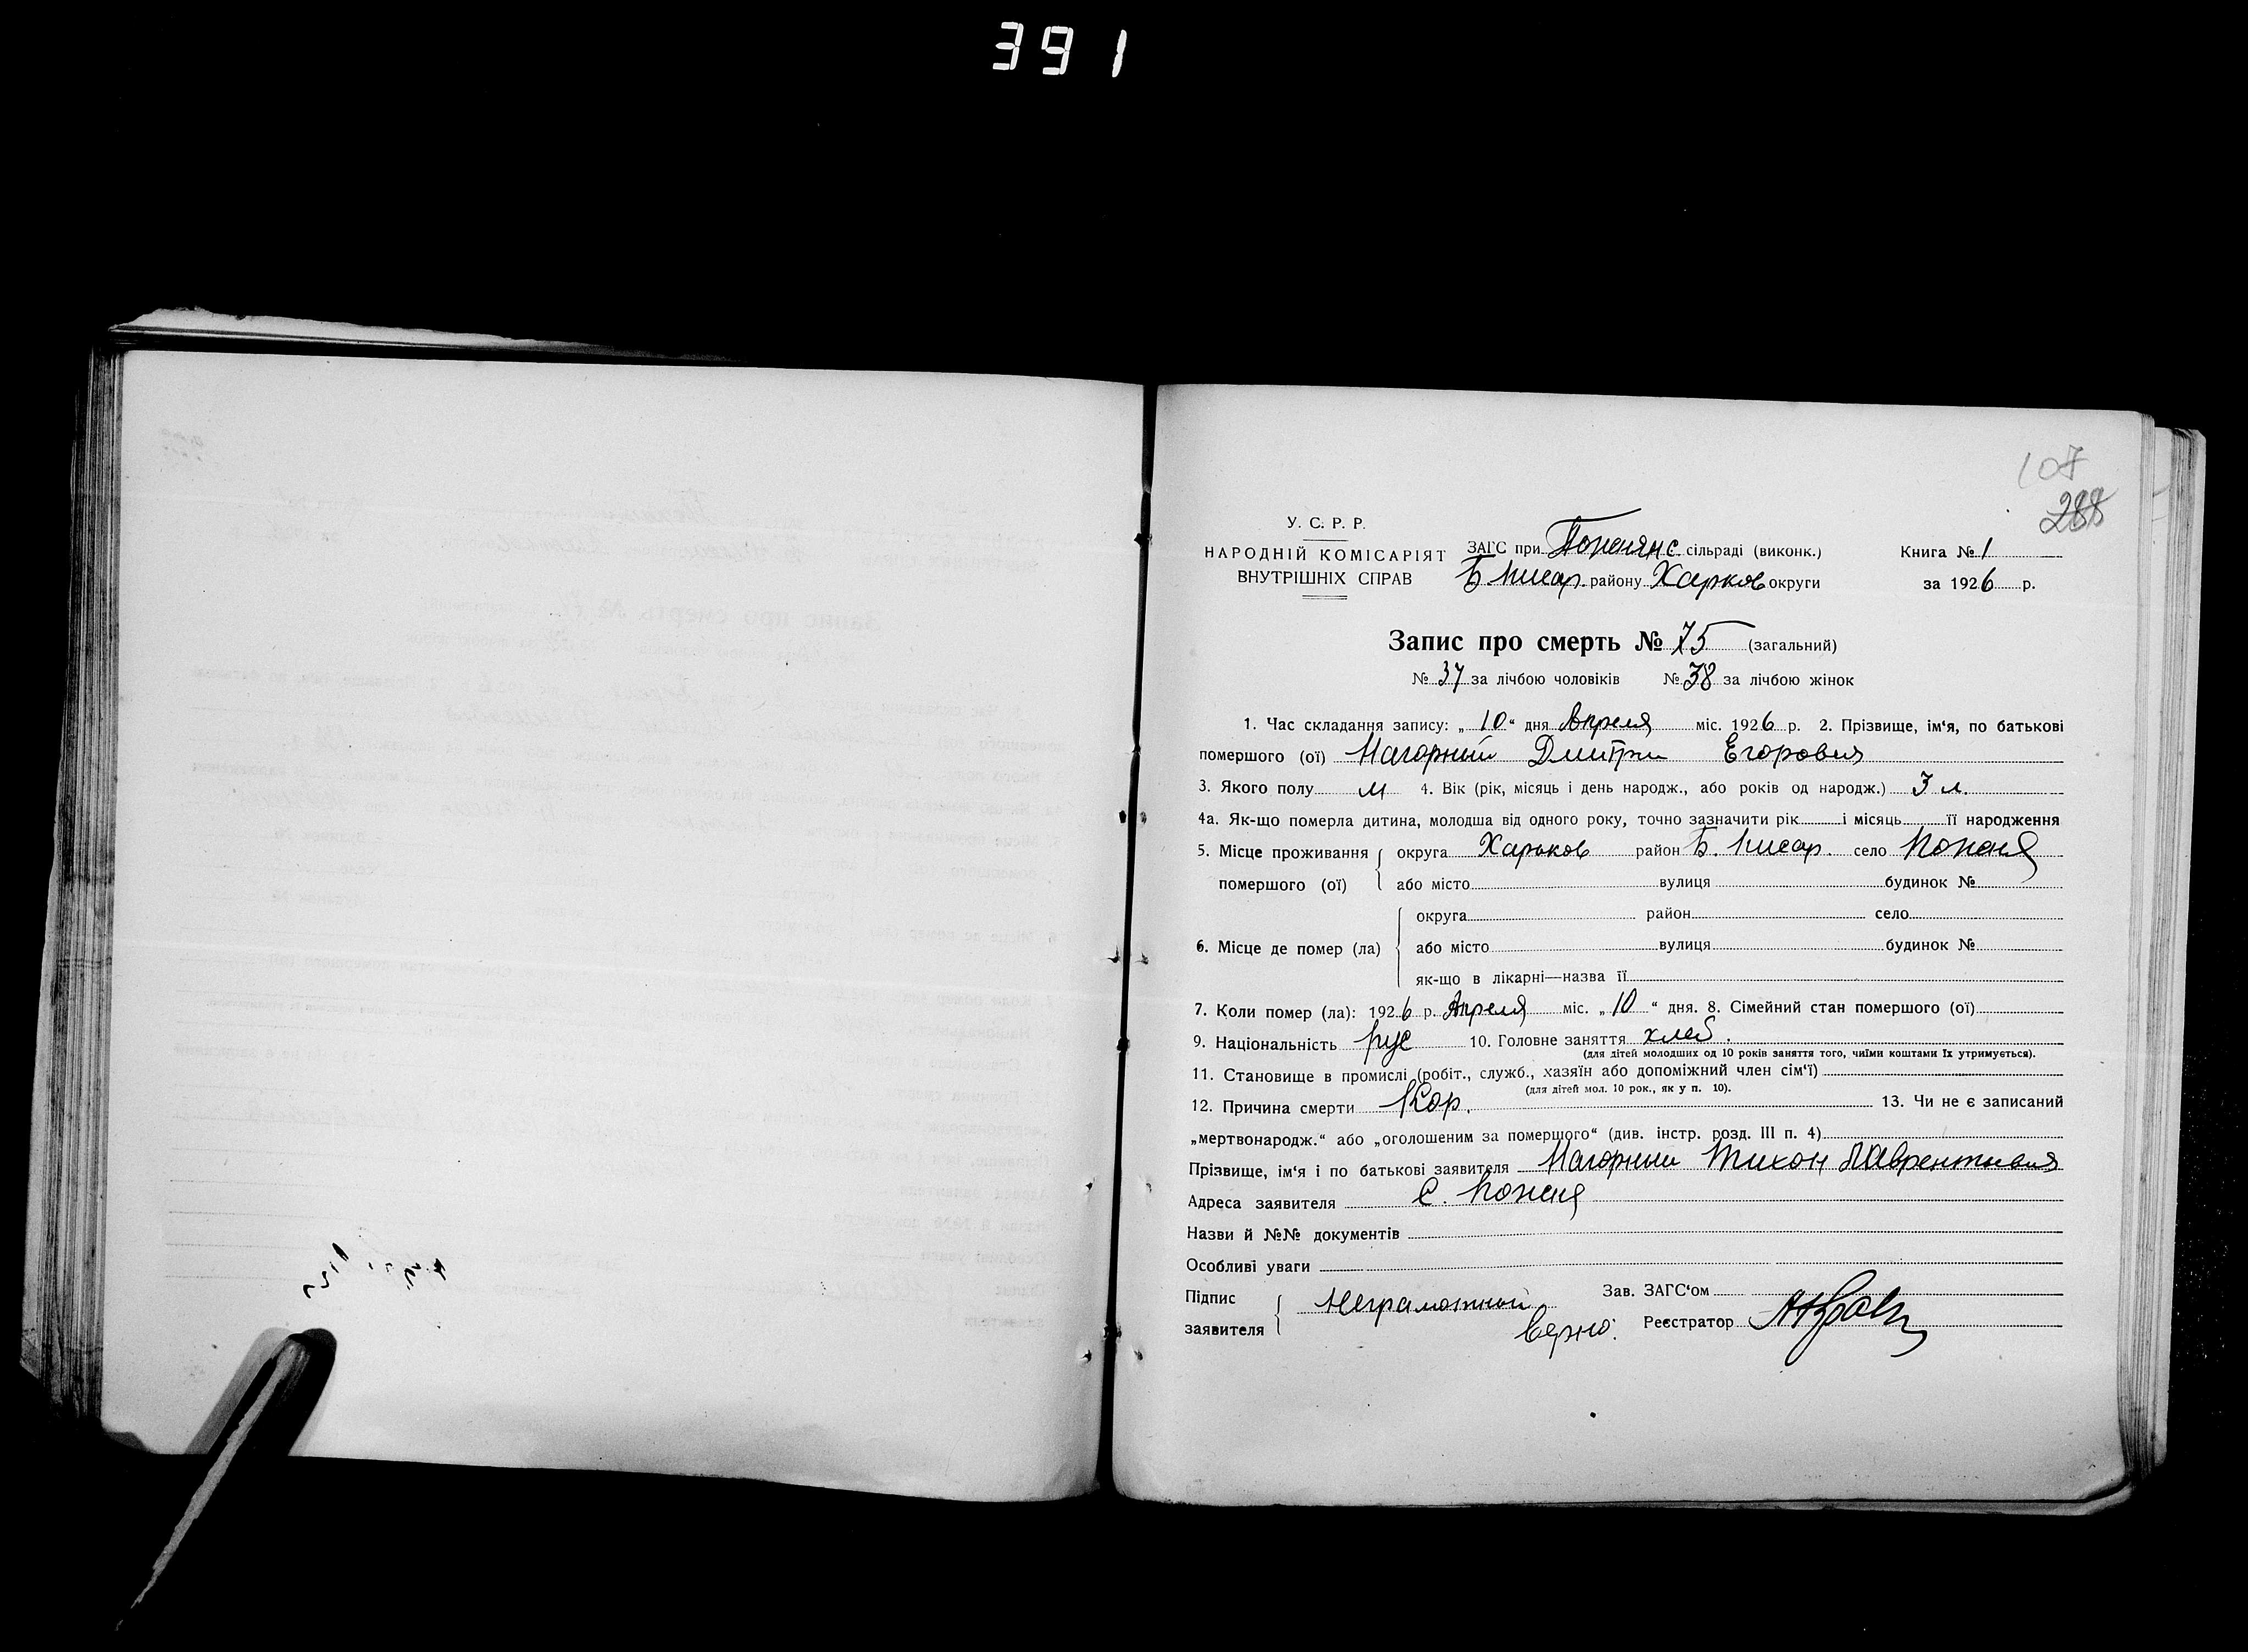 391
107
288
У. С. Р. Р.
НАРОДНІЙ КОМІСАРІЯТ
ВНУТРІШНІХ СПРАВ
ЗАГС при Попанянс. сільраді (виконк.)
Б Писар. району Харков округи
Книга № 1
за 1926 р.
Запис про смерть № 75 (загальний)
№ 37 за лічбою чоловіків № 38 за лічбою жінок
1. Час складання запису: „ 10 “ дня Апреля міс. 1926 р. 2. Прізвище, ім‘я, по батькові
помершого (ої) Нагорний Дмитри Егорович
3. Якого полу м 4. Вік (рік, місяць і день народж., або років од народж.) 3 л.
4а. Як-що померла дитина, молодша від одного року, точно зазначити рік і місяць її народження
5. Місце проживання округа Харьков район Б. Писар. село
помершого (ої) або місто вулиця будинок №
округа район село
6. Місце де помер (ла) або місто вулиця будинок №
як-що в лікарні—назва її
7. Коли помер (ла): 1926 р. Апреля міс. „ 10 “ дня. 8. Сімейний стан помершого (ої)
9. Національність рус 10. Головне заняття хлеб.
(для дітей молодших од 10 років заняття того, чиїми коштами їх утримується).
11. Становище в промислі (робіт., служб., хазяїн або допоміжний член сім‘ї)
(для дітей мол. 10 рок., як у п. 10).
12. Причина смерти Кор. 13. Чи не є записаний
„мертвонародж.“ або „оголошеним за помершого“ (див. інстр. розд. III п. 4)
Прізвище, ім‘я і по батькові заявителя Нагорний Тихон Лаврентьевич
Адреса заявителя с.
Назви й №№ документів
Особливі уваги
Підпис
заявителя
Неграмотный
Верно:
Зав. ЗАГС‘ом
Реєстратор